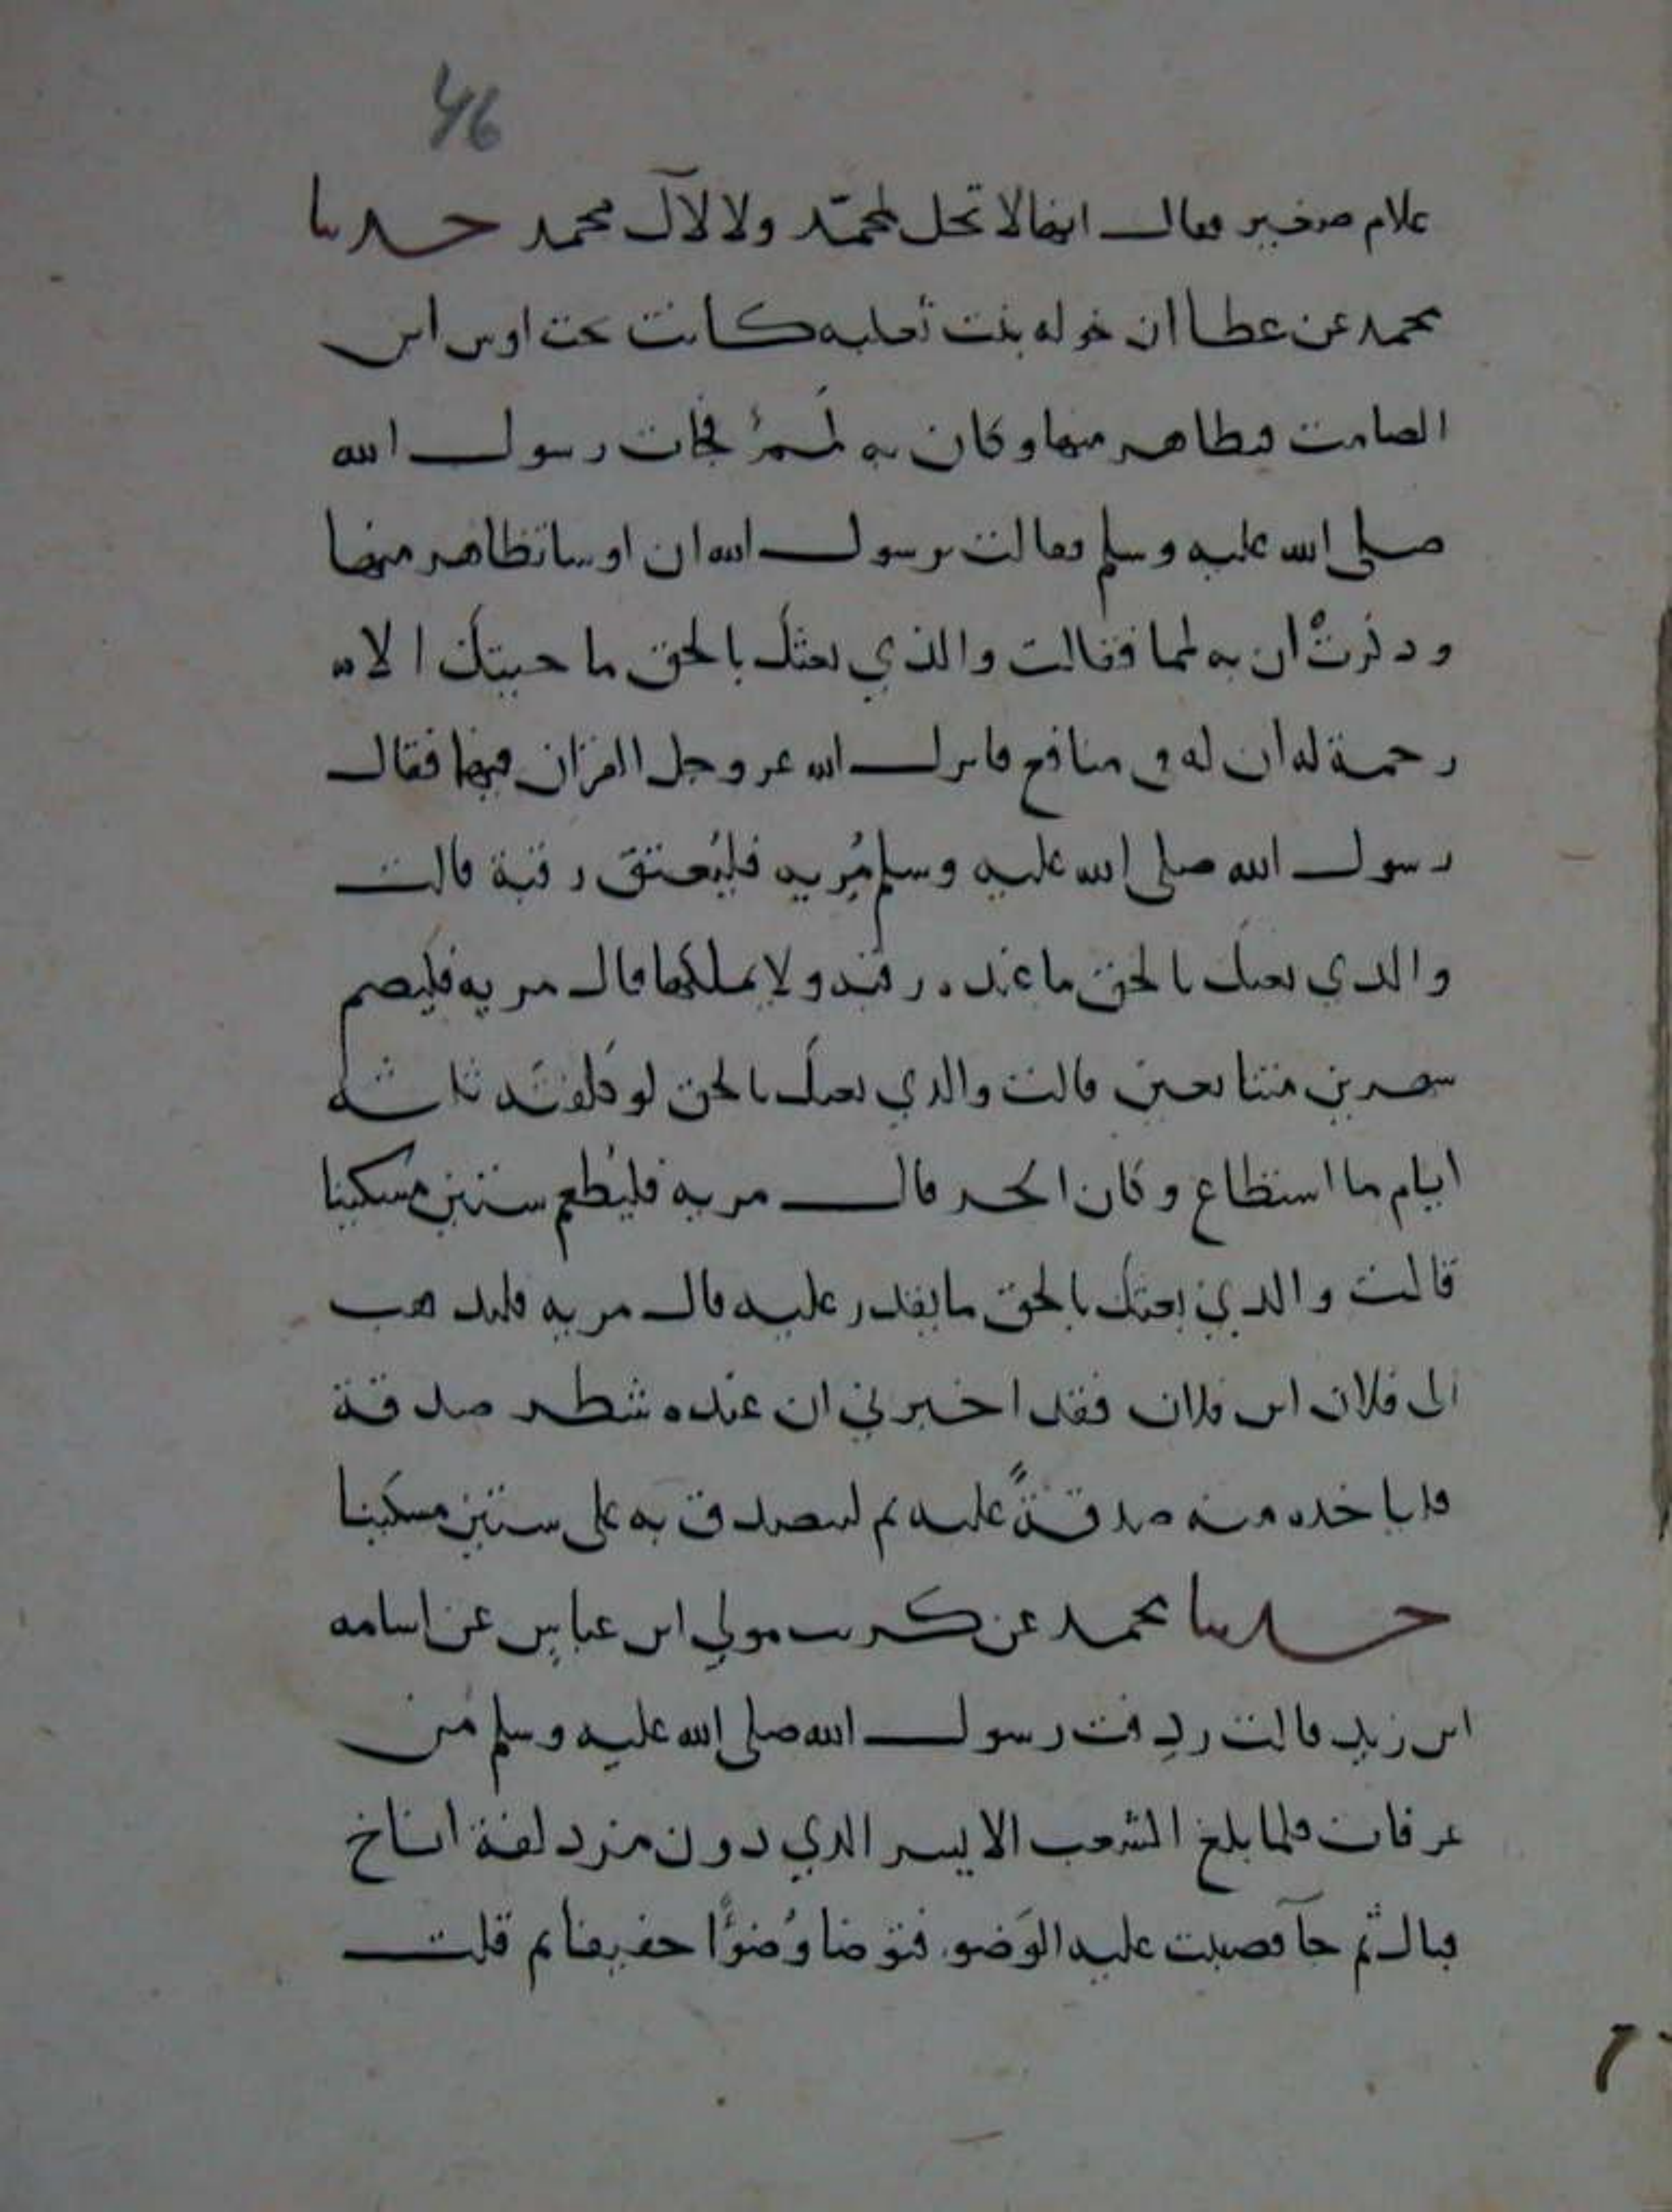 46
غلام صغير فقال انها لا تحل لمحمد ولا لآل محمد حدثنا
محمد عن عطا ان خوله بنت ثعلبه كانت تحت اوس ابن
الصامت فتظاهر منها وكان به لمم فجات رسول الله
صلى الله عليه وسلم فقالت يرسول الله ان اوسا تظاهر منها
وذكرت ان به لمما فقالت والذي بعثك بالحق ما جيتك الا
رحمة له ان له في منافع فانزل الله عز وجل القرآن فيها فقال
رسول الله صلى الله عليه وسلم مُريه فليُعتق رقبة قالت
والذي بعثك بالحق ما عنده رقبه ولا يملكها قال مريه فليصم
شهرين متتابعين قالت والذي بعثك بالحق لو كلفته ثلاثه
ايام ما استطاع وكان الحر قال مريه فليُطعم ستين مسكينا
قالت والذي بعثك بالحق ما يقدر عليه قال مريه فليذهب
الى فلان ابن فلان فقد اخبرني ان عنده شطر صدقة
فلياخذه منه صدقةً عليه ثم ليتصدق به على ستين مسكينا
حدثنا محمد عن كريب مولي ابن عباس عن اسامه
ابن زيد قالت ردِفت رسول الله صلى الله عليه وسلم من
عرفات فلما بلغ الشعب الايسر الذي دون مزدلفة اناخ
فبال ثم جآ فصببت عليه الوَضو فتوضا وُضوًا خفيفا ثم قلت